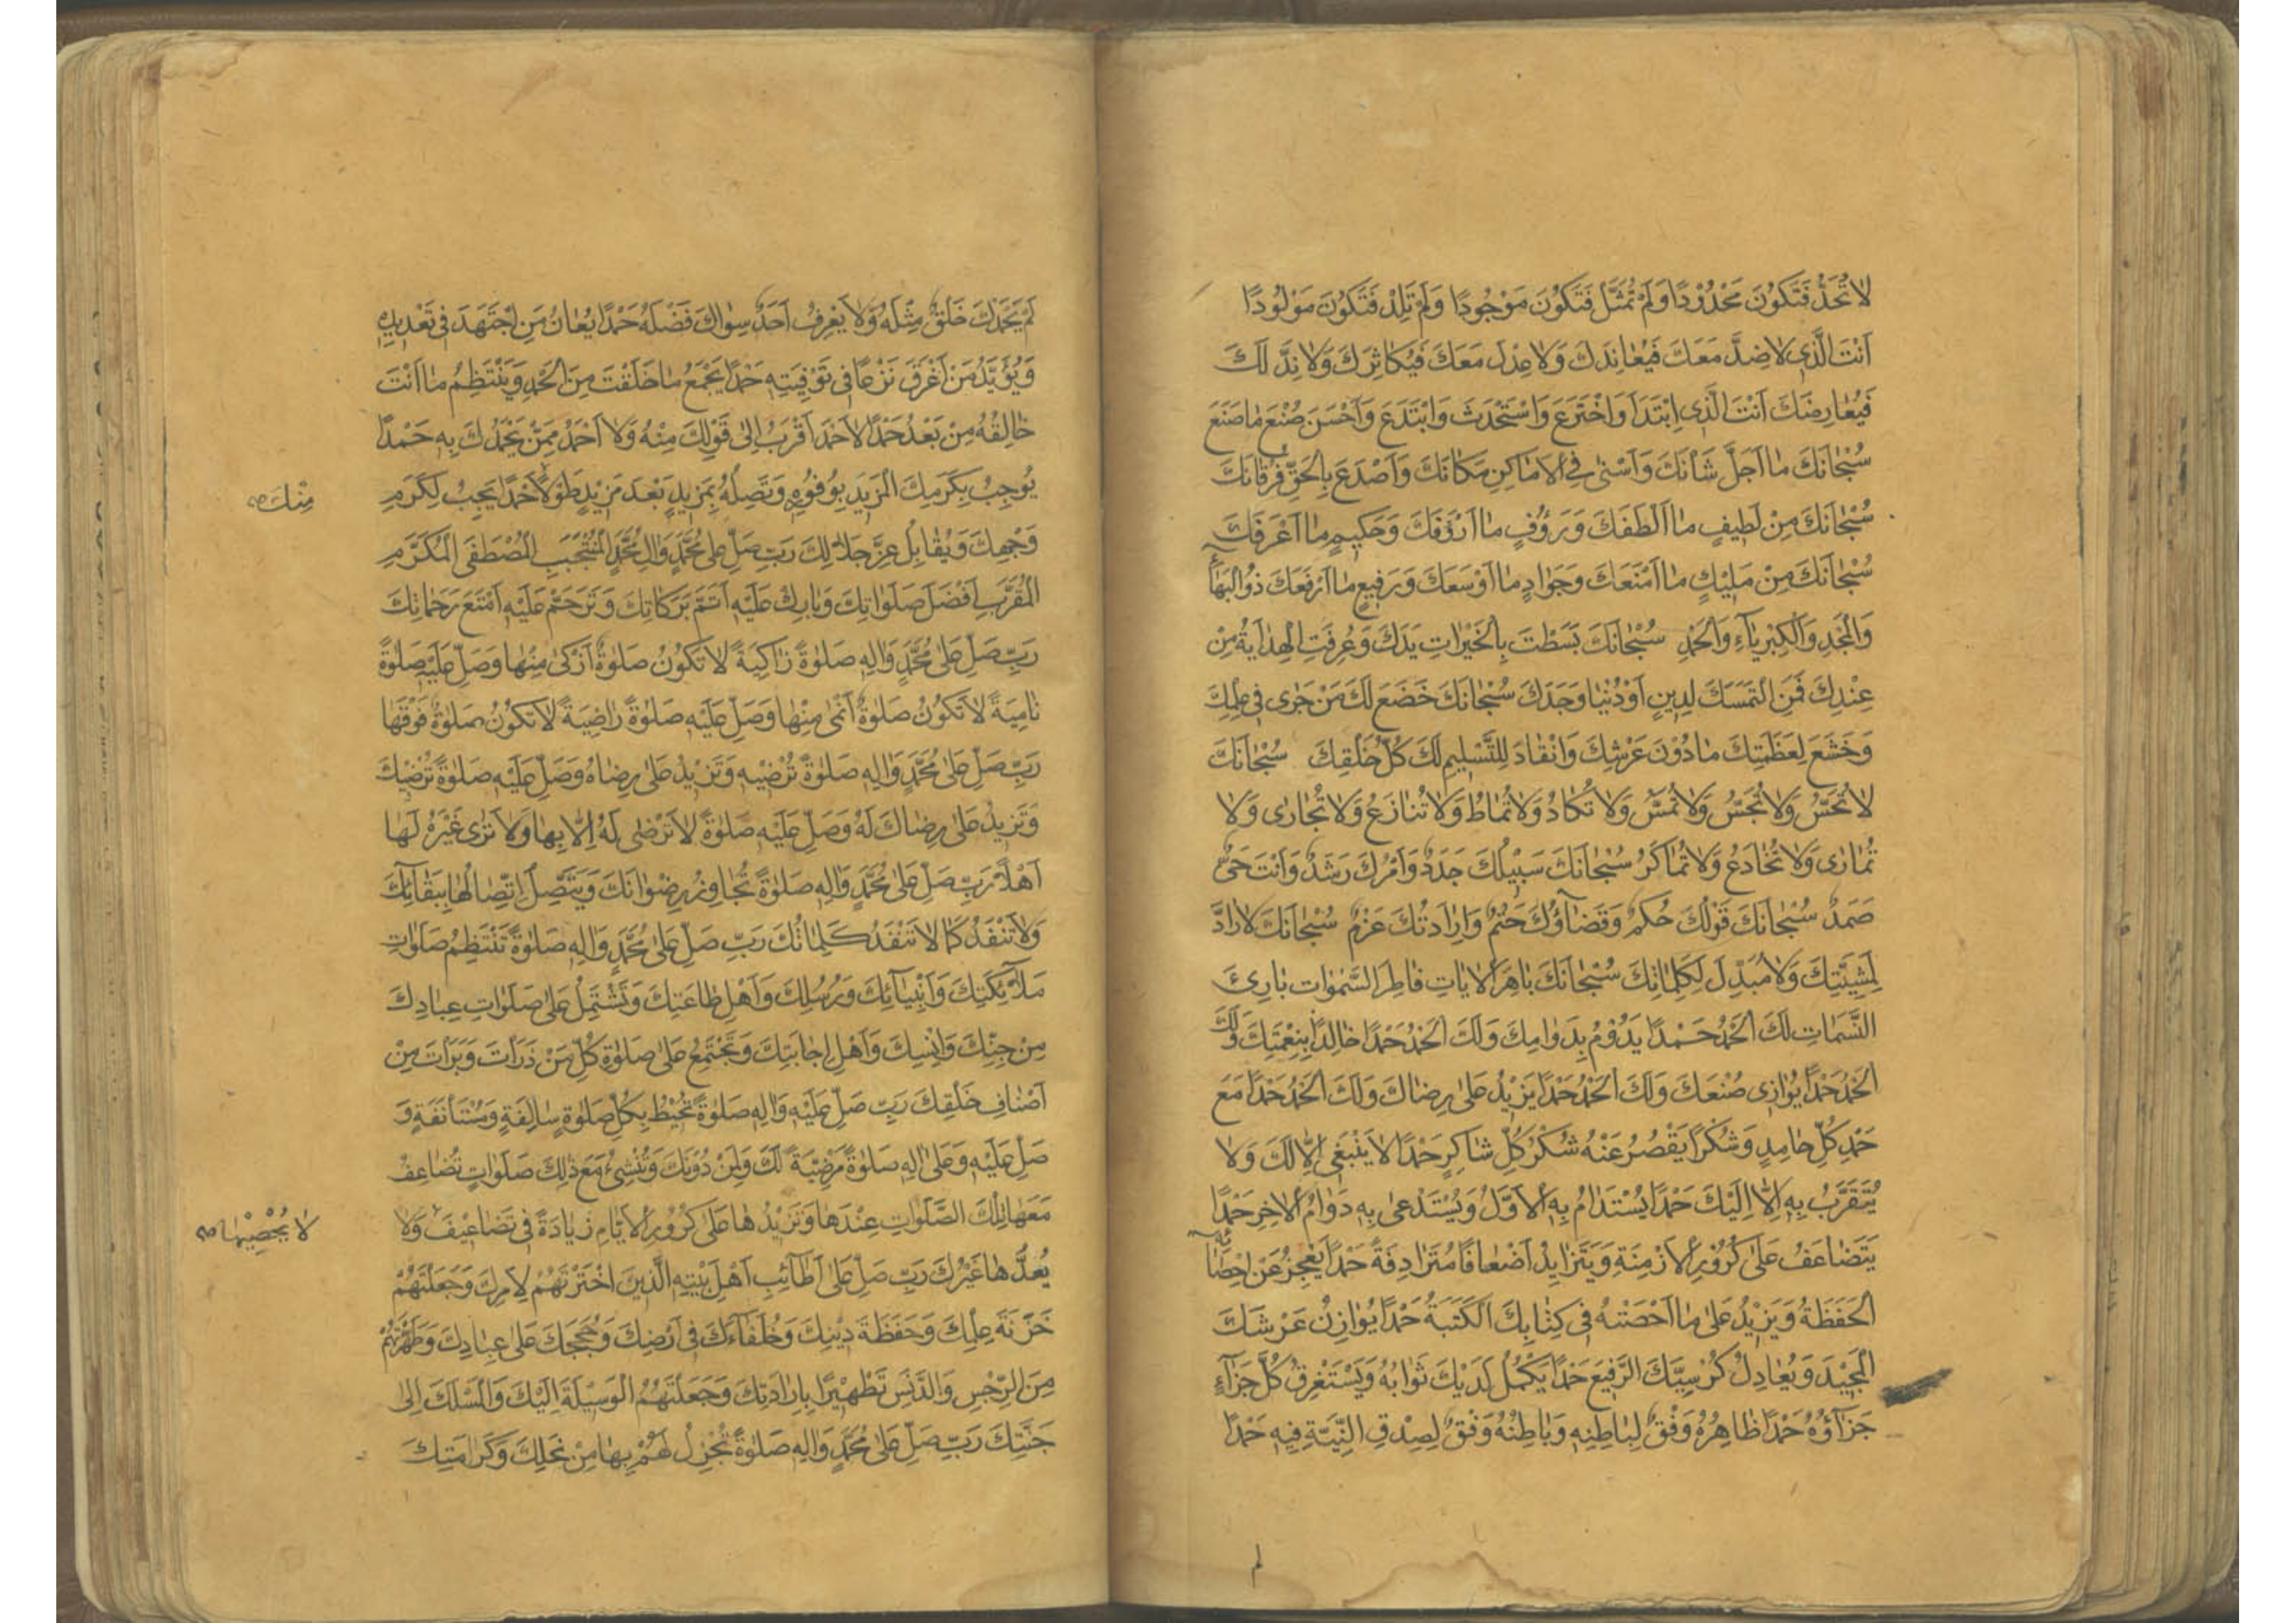 لَا تُحَدُّ فَتَكُوْنَ مَحْدُوْدًا وَلَمْ تُمَثَّلْ فَتَكُوْنَ مَوْجُودًا وَلَمْ تَلِدْ فَتَكُوْنَ مَوْلُوْدًا
اَنْتَ الَّذِي لَا ضِدَّ مَعَكَ فَيُعَانِدَكَ وَلَا عِدْلَ مَعَكَ فَيُكَاثِرَكَ وَلَا نِدَّ لَكَ
فَيُعَارِضَكَ اَنْتَ الَّذِي ابْتَدَأَ وَاخْتَرَعَ وَاسْتَحْدَثَ وَابْتَدَعَ وَاَحْسَنَ صُنْعَ مَا صَنَعَ
سُبْحَانَكَ مَا اَجَلَّ شَأنَكَ وَاَسْنٰى فِي الْاَمَاكِنِ مَكَانَكَ وَاَصْدَعَ بِالْحَقِّ فُرْقَانَكَ
سُبْحَانَكَ مِنْ لَطِيفٍ مَا اَلْطَفَكَ وَرَؤُفٍ مَا اَرْؤَفَكَ وَحَكِيمٍ مَا اَعْرَفَكَ
سُبْحَانَكَ مِنْ مَلِيْكٍ مَا اَمْنَعَكَ وَجَوَادٍ مَا اَوْسَعَكَ وَرَفِيعٍ مَا اَرْفَعَكَ ذُو الْبَهَاءِ
وَالْمَجْدِ وَالْكِبْرِيَاءِ وَالْحَمْدِ سُبْحَانَكَ بَسَطْتَ بِالْخَيْرَاتِ يَدَكَ وَعُرِفَتِ الْهِدَايَةُ مِنْ
عِنْدِكَ فَمَنِ الْتَمَسَكَ لِدِينٍ اَوْ دُنْيَا وَجَدَكَ سُبْحَانَكَ خَضَعَ لَكَ مَنْ جَرٰى فِي عِلْمِكَ
وَخَشَعَ لِعَظَمَتِكَ مَا دُوْنَ عَرْشِكَ وَانْقَادَ لِلتَّسْلِيمِ لَكَ كُلُّ خَلْقِكَ سُبْحَانَكَ
لَا تُحَسُّ وَلَا تُجَسُّ وَلَا تُمَسُّ وَلَا تُكَادُ وَلَا تُمَاطُ وَلَا تُنَازَعُ وَلَا تُجَارٰى وَلَا
تُمَارٰى وَلَا تُخَادَعُ وَلَا تُمَاكَرُ سُبْحَانَكَ سَبِيْلُكَ جَدَدٌ وَاَمْرُكَ رَشَدٌ وَاَنْتَ حَيٌّ
صَمَدٌ سُبْحَانَكَ قَوْلُكَ حُكْمٌ وَقَضَاؤُكَ حَتْمٌ وَاِرَادَتُكَ عَزْمٌ سُبْحَانَكَ لَا رَادَّ
لِمَشِيَّتِكَ وَلَا مُبَدِّلَ لِكَلِمَاتِكَ سُبْحَانَكَ بَاهِرَ الْاٰيَاتِ فَاطِرَ السَّمٰوَاتِ بَارِئَ
النَّسَمَاتِ لَكَ الْحَمْدُ حَمْدًا يَدُوْمُ بِدَوَامِكَ وَلَكَ الْحَمْدُ حَمْدًا خَالِدًا بِنِعْمَتِكَ وَلَكَ
الْحَمْدُ حَمْدًا يُوَازِي صُنْعَكَ وَلَكَ الْحَمْدُ حَمْدًا يَزِيْدُ عَلٰى رِضَاكَ وَلَكَ الْحَمْدُ حَمْدًا مَعَ
حَمْدِ كُلِّ حَامِدٍ وَشُكْرًا يَقْصُرُ عَنْهُ شُكْرُ كُلِّ شَاكِرٍ حَمْدًا لَا يَنْبَغِي اِلَّا لَكَ وَلَا
يُتَقَرَّبُ بِهِ اِلَّا اِلَيْكَ حَمْدًا يُسْتَدَامُ بِهِ الْاَوَّلُ وَيُسْتَدْعٰى بِهِ دَوَامُ الْاٰخِرِ حَمْدًا
يَتَضَاعَفُ عَلٰى كُرُوْرِ الْاَزْمِنَةِ وَيَتَزَايَدُ اَضْعَافًا مُتَرَادِفَةً حَمْدًا يَعْجِزُ عَنْ اِحْصَائِهِ
الْحَفَظَةُ وَيَزِيْدُ عَلٰى مَا اَحْصَتْهُ فِي كِتَابِكَ الْكَتَبَةُ حَمْدًا يُوَازِنُ عَرْشَكَ
الْمَجِيْدَ وَيُعَادِلُ كُرْسِيَّكَ الرَّفِيعَ حَمْدًا يَكْمُلُ لَدَيْكَ ثَوَابُهُ وَيَسْتَغْرِقُ كُلَّ جَزَاءٍ
جَزَاؤُهُ حَمْدًا ظَاهِرُهُ وَفْقٌ لِبَاطِنِهِ وَبَاطِنُهُ وَفْقٌ لِصِدْقِ النِّيَّةِ فِيهِ حَمْدًا
لم
لَمْ يَحْمَدْكَ خَلْقٌ مِثْلَهُ وَلَا يَعْرِفُ اَحَدٌ سِوَاكَ فَضْلَهُ حَمْدًا يُعَانُ مَنِ اجْتَهَدَ فِي تَعْدِيدِهِ
وَيُؤَيَّدُ مَنْ اَغْرَقَ نَزْعًا فِي تَوْفِيَتِهِ حَمْدًا يَجْمَعُ مَا خَلَقْتَ مِنَ الْحَمْدِ وَيَنْتَظِمُ مَا اَنْتَ
خَالِقُهُ مِنْ بَعْدُ حَمْدًا لَا حَمْدَ اَقْرَبُ اِلٰى قَوْلِكَ مِنْهُ وَلَا اَحْمَدُ مِمَّنْ يَحْمَدُكَ بِهِ حَمْدًا
يُوْجِبُ بِكَرَمِكَ الْمَزِيدَ بِوُفُوْرِهِ وَتَصِلُهُ بِمَزِيدٍ بَعْدَ مَزِيْدٍ طَوْلًا حَمْدًا يَجِبُ لِكَرَمِ
مِنْكَ صح
وَجْهِكَ وَيُقَابِلُ عِزَّ جَلَالِكَ رَبِّ صَلِّ عَلٰى مُحَمَّدٍ وَاٰلِ مُحَمَّدٍ الْمُنْتَجَبِ الْمُصْطَفَى الْمُكَرَّمِ
الْمُقَرَّبِ اَفْضَلَ صَلَوَاتِكَ وَبَارِكْ عَلَيْهِ اَتَمَّ بَرَكَاتِكَ وَتَرَحَّمْ عَلَيْهِ اَمْتَعَ رَحَمَاتِكَ
رَبِّ صَلِّ عَلٰى مُحَمَّدٍ وَاٰلِهِ صَلٰوةً زَاكِيَةً لَا تَكُوْنُ صَلٰوةٌ اَزْكٰى مِنْهَا وَصَلِّ عَلَيْهِ صَلٰوةً
نَامِيَةً لَا تَكُوْنُ صَلٰوةٌ اَنْمٰى مِنْهَا وَصَلِّ عَلَيْهِ صَلٰوةً رَاضِيَةً لَا تَكُوْنُ صَلٰوةٌ فَوْقَهَا
رَبِّ صَلِّ عَلٰى مُحَمَّدٍ وَاٰلِهِ صَلٰوةً تُرْضِيهِ وَتَزِيْدُ عَلٰى رِضَاهُ وَصَلِّ عَلَيْهِ صَلٰوةً تُرْضِيْكَ
وَتَزِيْدُ عَلٰى رِضَاكَ لَهُ وَصَلِّ عَلَيْهِ صَلٰوةً لَا تَرْضٰى لَهُ اِلَّا بِهَا وَلَا تَرٰى غَيْرَهُ لَهَا
اَهْلًا رَبِّ صَلِّ عَلٰى مُحَمَّدٍ وَاٰلِهِ صَلٰوةً تُجَاوِزُ رِضْوَانَكَ وَيَتَّصِلُ اتِّصَالُهَا بِبَقَائِكَ
وَلَا تَنْفَدُ كَمَا لَا تَنْفَدُ كَلِمَاتُكَ رَبِّ صَلِّ عَلٰى مُحَمَّدٍ وَاٰلِهِ صَلٰوةً تَنْتَظِمُ صَلَوَاتِ
مَلَائِكَتِكَ وَاَنْبِيَائِكَ وَرُسُلِكَ وَاَهْلِ طَاعَتِكَ وَتَشْتَمِلُ عَلٰى صَلَوَاتِ عِبَادِكَ
مِنْ جِنِّكَ وَاِنْسِكَ وَاَهْلِ اِجَابَتِكَ وَتَجْتَمِعُ عَلٰى صَلٰوةِ كُلِّ مَنْ ذَرَأْتَ وَبَرَأْتَ مِنْ
اَصْنَافِ خَلْقِكَ رَبِّ صَلِّ عَلَيْهِ وَاٰلِهِ صَلٰوةً تُحِيْطُ بِكُلِّ صَلٰوةٍ سَالِفَةٍ وَمُسْتَأْنَفَةٍ وَ
صَلِّ عَلَيْهِ وَعَلٰى اٰلِهِ صَلٰوةً مَرْضِيَّةً لَكَ وَلِمَنْ دُوْنَكَ وَتُنْشِئُ مَعَ ذٰلِكَ صَلَوَاتٍ تُضَاعِفُ
مَعَهَا تِلْكَ الصَّلَوَاتِ عِنْدَهَا وَتَزِيْدُهَا عَلٰى كُرُوْرِ الْاَيَّامِ زِيَادَةً فِي تَضَاعِيْفَ وَلَا
لَا يُحْصِيْهَا صح
يُعَدُّهَا غَيْرُكَ رَبِّ صَلِّ عَلٰى اَطَائِبِ اَهْلِ بَيْتِهِ الَّذِينَ اخْتَرْتَهُمْ لِاَمْرِكَ وَجَعَلْتَهُمْ
خَزَنَةَ عِلْمِكَ وَحَفَظَةَ دِيْنِكَ وَخُلَفَاءَكَ فِي اَرْضِكَ وَحُجَجَكَ عَلٰى عِبَادِكَ وَطَهَّرْتَهُمْ
مِنَ الرِّجْسِ وَالدَّنَسِ تَطْهِيْرًا بِاِرَادَتِكَ وَجَعَلْتَهُمُ الْوَسِيْلَةَ اِلَيْكَ وَالْمَسْلَكَ اِلٰى
جَنَّتِكَ رَبِّ صَلِّ عَلٰى مُحَمَّدٍ وَاٰلِهِ صَلٰوةً تُجْزِلُ لَهُمْ بِهَا مِنْ نِحَلِكَ وَكَرَامَتِكَ